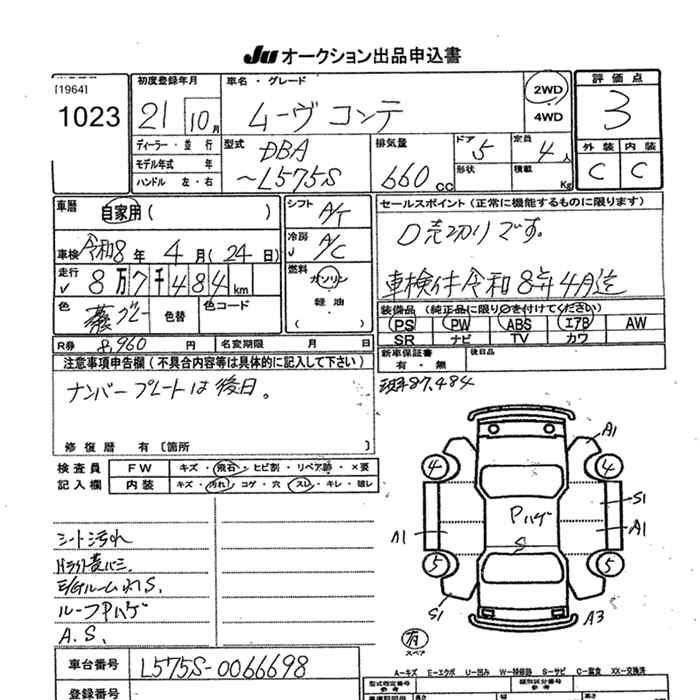 JU オークション出品申込書
[1964]
1023
初度登録年月
21 10月
車名・グレード
ムーヴ コンテ
2WD
4WD
評価点
3
ディーラー・並行
モデル年式 年
ハンドル 左・右
型式
DBA
~L575S
排気量
660cc
ドア
5
形状
定員
4人
積載
Kg
外装 内装
C C
車暦
自家用( )
シフト
A/T
セールスポイント(正常に機能するものに限ります)
口売切りです。
車検付令和8年4月迄
車検 令和8年 4月(24日)
冷房
A/C
走行
8万7千484km
燃料
ガソリン
軽油
( )
色
グレー
色替
色コード
装備品(純正品に限り○を付けてください)
PS PW ABS エアB AW
SR ナビ TV カワ
R券 8,960円
名変期限 月 日
新車保証書
有・無
後日品
注意事項申告欄(不具合内容等は具体的に記入して下さい)
87,484
ナンバープレートは後日。
修復暦 有〔箇所 〕
検査員
記入欄
FW キズ・飛石・ヒビ割・リペア跡・×要
内装 キズ・汚れ・コゲ・穴・スレ・キレ・破レ
シート汚れ
E/GルームサS.
ルーフPハゲ
A.S.
A1
4 4
S1
Pハゲ
A1 A1
S
5 5
S1
A3
有
スペア
A-キズ E-エクボ U-凹み W-補修跡 S-サビ C-腐食 XX-交換済
車台番号
L575S-0066698
登録番号
型式指定番号
参考
類別区分番号
参考
長さ 幅 高さ